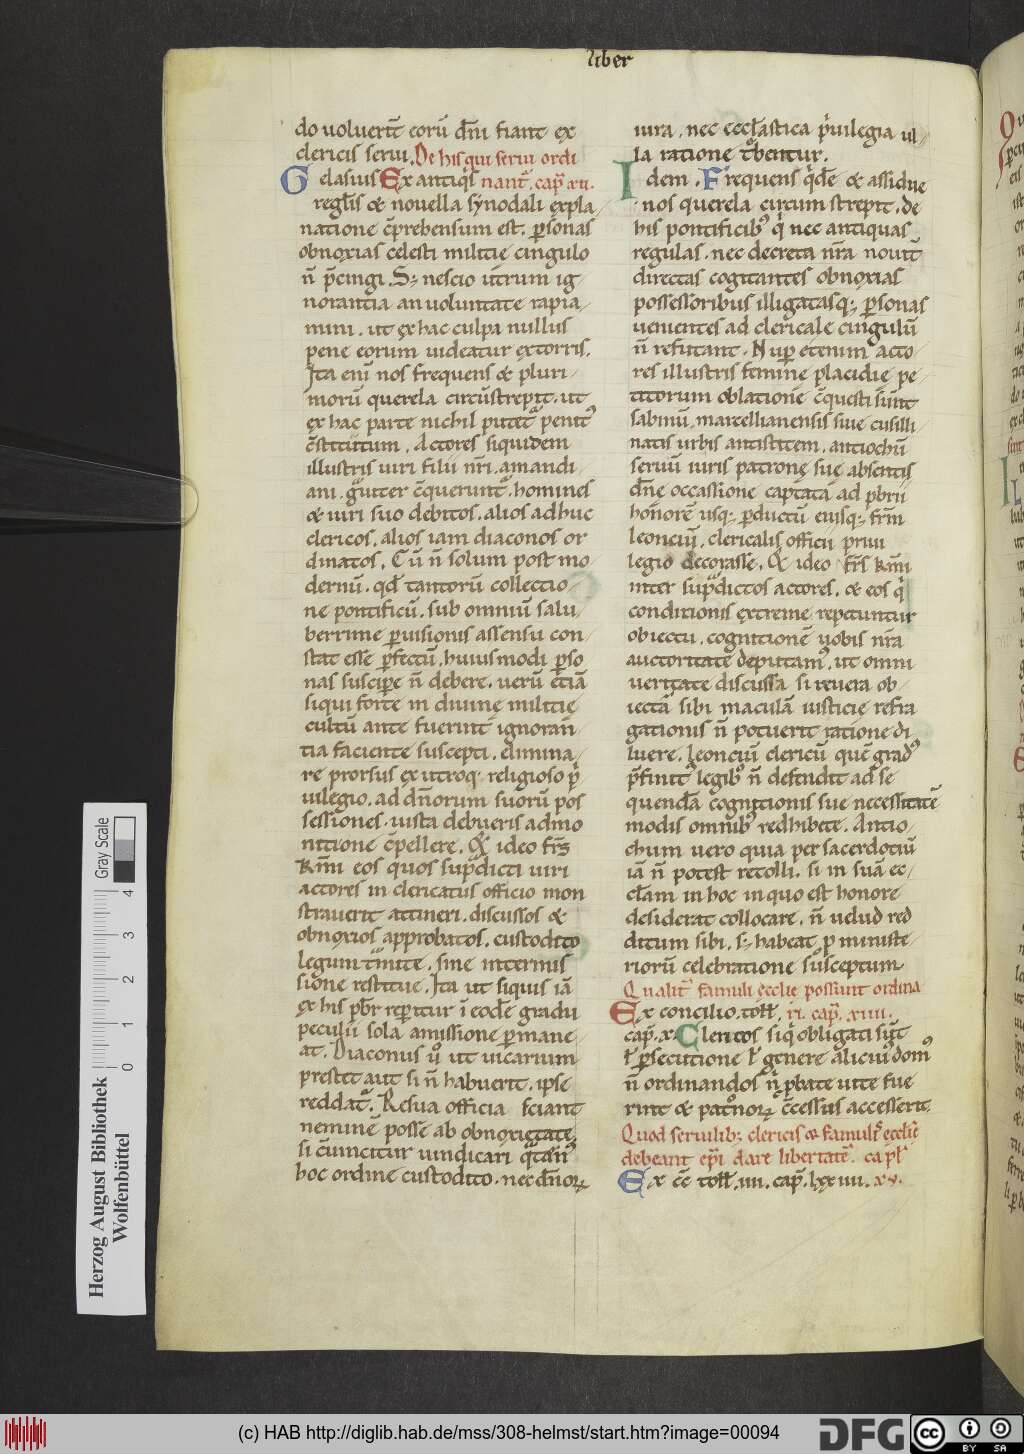 liber
do uoluert̄ eorū dn̄i fiant ex
clericis serui. De his qui serui ordi
Gelasius Ex antiqis nant᷑. cap̄. xii.
regl̄is & nouella synodali expla
natione c̄prehensum est. p̱sonas
obnoxias celesti militie cingulo
n̄ p̄cingi. S; nescio ut̄rum ig
norantia an uoluntate rapia
mini. ut ex hac culpa nullus
pene eorum uideatur extorris.
Ita eni̅ nos frequens & pluri
morū querela circūstrepit. ut
ex hac parte nichil putet᷑ penit᷒
c̄stitutum. Actores siquidem
illustris uiri filii nr̄i. amandi
ani. gͣuiter c̄querunt᷑. homines
& iuri suo debitos. alios adhuc
clericos. alios iam diaconos or
dinatos. Cū n̄ solum post mo
dernū. qd̄ tantorū collectio
ne pontificū. sub omniū salu
berrime p̱uisionis assensu con
stat esse p̱fectū. huiusmodi p̱so
nas suscip̱e n̄ debere. uerū etiā
siqui forte in diuine militie
cultū ante fuerint ignoran̄
tia faciente suscepti. elimina
re prorsus ex utroq᷒ religioso p̱
uilegio. ad dn̄orum suorū pos
sessiones. iusta debueris admo
nitione c̄pellere. Et ideo frs̄
km̄i eos quos sup̱dicti uiri
actores in clericatus officio mon
strauerit attineri. discussos &
obnoxios approbatos. custodito
legum t̄mite. sine intermis
sione restitue. Ita ut siquis iā
ex his pbr̄ rep̱itur i̅ eodē gradu
peculii sola amissione p̱mane
at. Diaconus ů ut uicarium
prestet aut si n̄ habuerit. ipse
reddat᷑. Resua officia sciant
neminē posse ab obnoxietate.
si cūuincitur uindicari qͣtin᷒
hoc ordine custodito. nec dn̄oꝝ
iura. nec ecclastica p̱uilegia ul
la ratione t᷑bentur.
Idem. Frequens qͥde̅ & assidue
nos querela circum strepit. de
his pontificib᷒ qͥ nec antiquas
regulas. nec decreta nr̄a nouit̄
directas cogitantes obnoxias
possessoribus illigatasq;. p̱sonas
uenientes ad clericale cingulū
n̄ refutant. Nup̱ etenim acto
res illustris femine placidie pe
titorum oblatione c̄questi sunt
sabinū. marcellianensis siue cusilli
natis urbis antistitem. antiochū
seruū iuris patrone sue absentis
dn̄e occassione captatā ad pbr̄ii
honore̅ usq; p̱ductū eiusq; frm̄
leonciū. clericalis officii priui
legio decorasse. Et ideo frs̄ km̄i
inter sup̱dictos actores. & eos qͥ
conditionis extreme repetuntur
obiectu. cognitione̅ uobis nr̄a
auctoritate deputam᷒. ut omni
ueritate discussa si reuera ob
iectā sibi maculā iusticie refra
gationis n̄ potuerit ratione di
luere. leonciū clericū que̅ grad᷒
p̄finit᷒ legib᷒ n̄ defendit ad se
quendā cognitionis sue necessitate̅
modis omnib᷒ redhibete. Antio
chum uero quia per sacerdotiū
iā n̄ potest retolli. si in suā ec
cl̄am in hoc in quo est honore
desiderat collocare. n̄ uelud red
ditum sibi. s; habeat p̱ ministe
riorū celebratione susceptum
Qualit᷑ famuli ecclie possunt ordina
Ex concilio. toll̄. ri. cap̄. xiiii.
cap̄. x. Clericos siqͥ obligati sūt
ł p̱secutione ł genere alicui᷒ dom᷒
n̄ ordinandos n̄ p̱bate uite fue
rint & patnoꝝ c̄cessus accesserit.
Quod seruilib; clericis & famul᷒ ecclie
debeant epi̅ dare libertate̅. capl̄
Ex c̄c toll̄. iiii. cap̄. lxxiiii. xv.
Gray Scale
4
3
2
1
0
Herzog August Bibliothek
Wolfenbüttel
(c) HAB http://diglib.hab.de/mss/308-helmst/start.htm?image=00094
DFG
cc
BY
SA